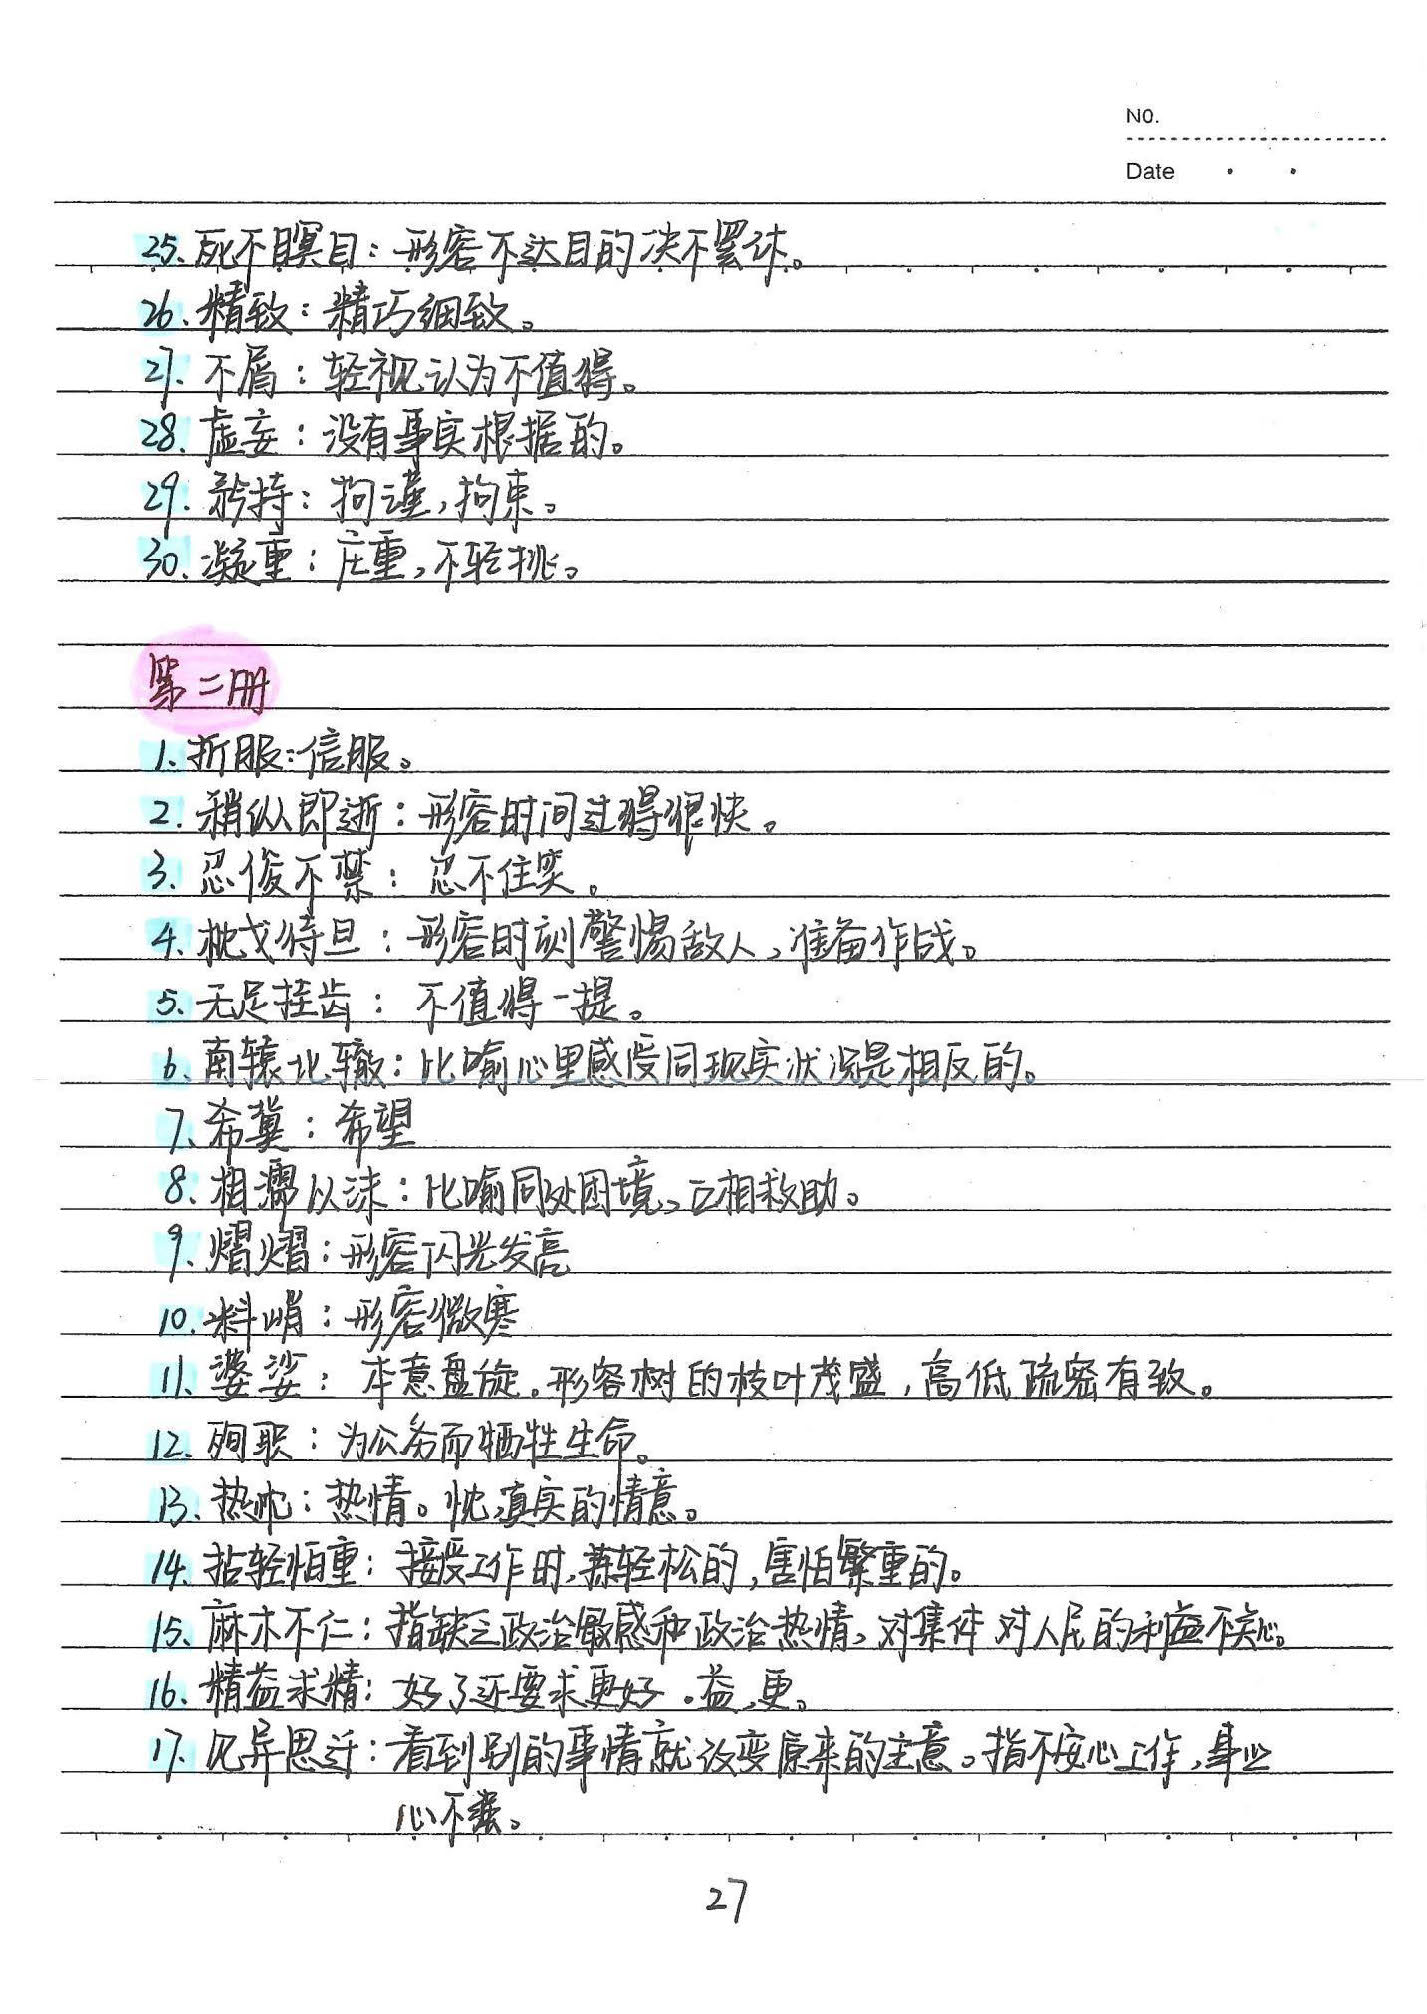 NO.
Date
25. 死不瞑目：形容不达目的决不罢休。
26. 精致：精巧细致。
27. 不屑：轻视认为不值得。
28. 虚妄：没有事实根据的。
29. 矜持：拘谨，拘束。
30. 凝重：庄重，不轻挑。
第二册
1. 折服：信服。
2. 稍纵即逝：形容时间过得很快。
3. 忍俊不禁：忍不住笑。
4. 枕戈待旦：形容时刻警惕敌人，准备作战。
5. 无足挂齿：不值得一提。
6. 南辕北辙：比喻心里感受同现实状况是相反的。
7. 希冀：希望
8. 相濡以沫：比喻同处困境，互相救助。
9. 熠熠：形容闪光发亮
10. 料峭：形容微寒
11. 婆娑：本意盘旋。形容树的枝叶茂盛，高低疏密有致。
12. 殉职：为公务而牺牲生命。
13. 热忱：热情。忱，真实的情意。
14. 拈轻怕重：接受工作时，拣轻松的，害怕繁重的。
15. 麻木不仁：指缺乏政治敏感和政治热情，对集体 对人民的利益不关心。
16. 精益求精：好了还要求更好。益，更。
17. 见异思迁：看到别的事情就改变原来的主意。指不安心工作，事业
心不强。
27